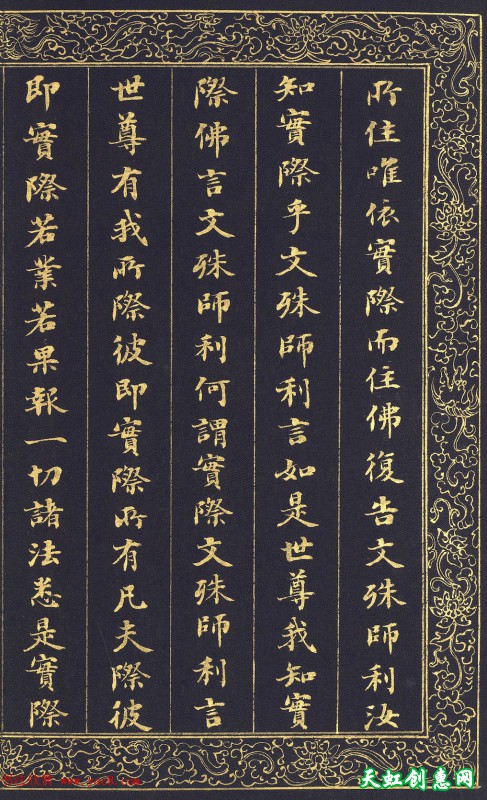 所住唯依實際而住佛復告文殊師利汝
知實際乎文殊師利言如是世尊我知實
際佛言文殊師利何謂實際文殊師利言
世尊有我所際彼即實際所有凡夫際彼
即實際若業若果報一切諸法悉是實際
天虹创惠网